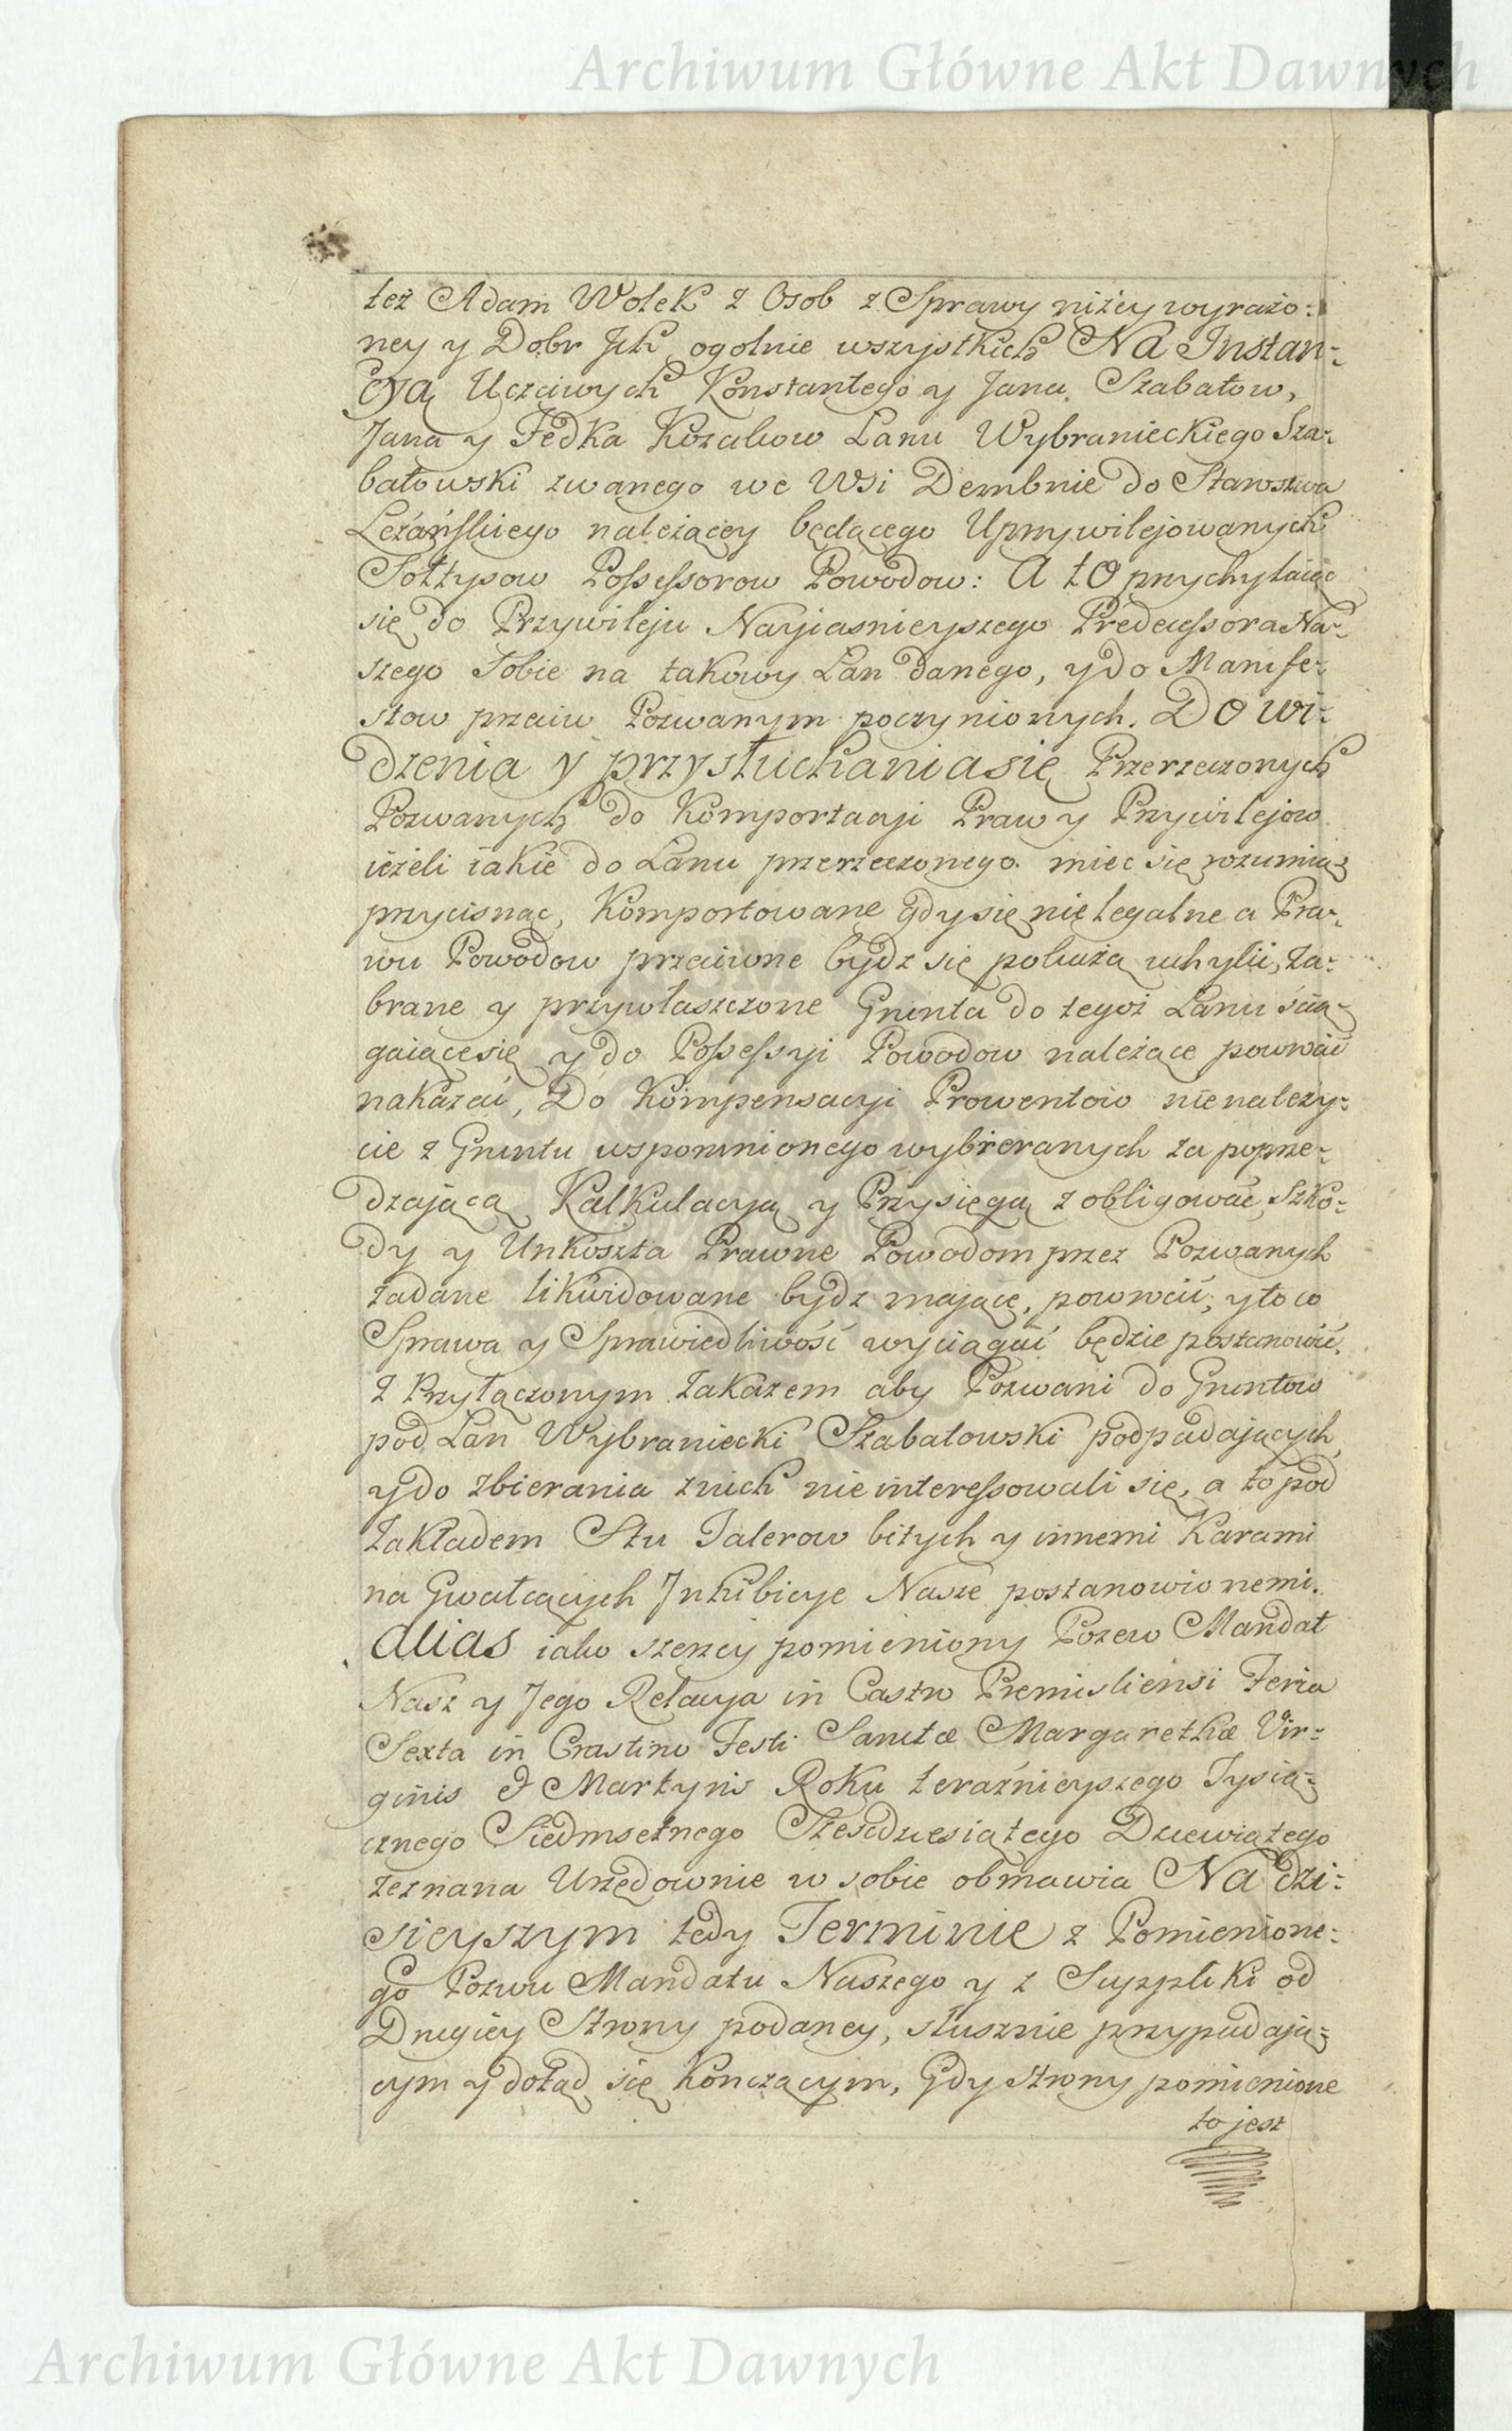 Archiwum Główne Akt Dawnych
też Adam Wołek z Osob z Sprawy niżey wyrażo-
ney y Dobr Jch ogolnie wszystkich Na Jnstan-
cyą Uczciwych Konstantego y Jana Szabatow,
Jana y Fedka Kozakow Łanu Wybranieckiego Sza-
batowski zwanego we Wsi Dembnie do Starostwa
Leżáńskiego należącey będącego Uprzywilejowanych
Sołtysow Possessorow Powodow: A to przychylaiąc
się do Przywileju Nayjasnieyszego Predecessora Na-
szego Sobie na takowy Łan danego, y do Manife-
stow przeciw Pozwanym poczynionych. Do wi-
dzenia y przysłuchania się Przerzeczonych
Pozwanych do Komportacyi Praw y Przywilejow
ieżeli iakie do Łanu przerzeczonego miec się rozumią
przycisnąc, Komportowane gdy się nie legalne a Pra-
wu Powodow przeciwne bydz się pokażą uchylić, Za-
brane y przywłaszczone Grunta do tegoż Łanu scią-
gaiące się y do Possessyi Powodow należące powrocić
nakazać, Do Kompensacyi Prowentow nienależy-
cie z Gruntu wspomnionego wybieranych za poprze-
dzającą Kalkulacyą y Przysięgą zobligować, Szko-
dy y Unkoszta Prawne Powodom przez Pozwanych
zadane likwidowane bydz mające, powrocić, y to co
Sprawa y Sprawiedliwość wyciągać będzie postanowić.
z Przyłączonym zakazem aby Pozwani do Gruntow
pod Łan Wybraniecki Szabatowski podpadających,
y do zbierania z nich nie interessowali się, a to pod
zakładem Stu Talerow bitych y innemi Karami
na Gwałcących Jnhibicye Nasze postanowionemi.
alias iako szerzey pomieniony Pozew Mandat
Nasz y Jego Relacya in Castro Premisliensi Feria
Sexta in Crastino Festi Sanctæ Margarethæ Vir-
ginis & Martyris Roku teraźnieyszego Tysią-
cznego Siedmsetnego Szesdziesiątego Dziewiątego
zeznana Urzędownie w sobie obmawia Na dzi-
sieyszym tedy Terminie z Pomienione-
go Pozwu Mandatu Naszego y z Suppliki od
Drugiey Strony podaney, słusznie przypadają-
cym y dotąd się Konczącym, Gdy strony pomienione
to jest
Archiwum Główne Akt Dawnych